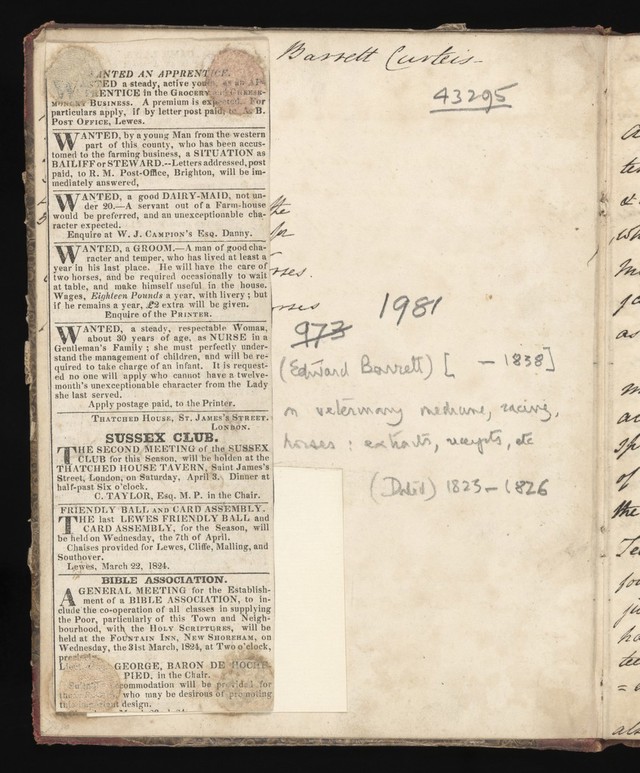 WANTED AN APPRENTICE.
WANTED a steady, active youth, as an AP-
PRENTICE in the GROCERY and CHEESE-
MONGERY BUSINESS. A premium is expected. For
particulars apply, if by letter post paid, to A. B.
POST OFFICE, Lewes.
WANTED, by a young Man from the western
part of this county, who has been accus-
tomed to the farming business, a SITUATION as
BAILIFF or STEWARD.--Letters addressed, post
paid, to R. M. Post-Office, Brighton, will be im-
mediately answered,
WANTED, a good DAIRY-MAID, not un-
der 20.—A servant out of a Farm-house
would be preferred, and an unexceptionable cha-
racter expected.
Enquire at W. J. CAMPION'S Esq. Danny.
WANTED, a GROOM.—A man of good cha-
racter and temper, who has lived at least a
year in his last place. He will have the care of
two horses, and be required occasionally to wait
at table, and make himself useful in the house.
Wages, Eighteen Pounds a year, with livery; but
if he remains a year, £2 extra will be given.
Enquire of the PRINTER.
WANTED, a steady, respectable Woman,
about 30 years of age, as NURSE in a
Gentleman's Family; she must perfectly under-
stand the management of children, and will be re-
quired to take charge of an infant. It is request-
ed no one will apply who cannot have a twelve-
month's unexceptionable character from the Lady
she last served.
Apply postage paid, to the Printer.
THATCHED HOUSE, ST. JAMES'S STREET.
LONDON.
SUSSEX CLUB.
THE SECOND MEETING of the SUSSEX
CLUB for this Season, will be holden at the
THATCHED HOUSE TAVERN, Saint James's
Street, London, on Saturday, April 3. Dinner at
half-past Six o'clock.
C. TAYLOR, Esq. M. P. in the Chair.
FRIENDLY BALL AND CARD ASSEMBLY.
THE last LEWES FRIENDLY BALL and
CARD ASSEMBLY, for the Season, will
be held on Wednesday, the 7th of April.
Chaises provided for Lewes, Cliffe, Malling, and
Southover.
Lewes, March 22, 1824.
BIBLE ASSOCIATION.
A GENERAL MEETING for the Establish-
ment of a BIBLE ASSOCIATION, to in-
clude the co-operation of all classes in supplying
the Poor, particularly of this Town and Neigh-
bourhood, with the HOLY SCRIPTURES, will be
held at the FOUNTAIN INN, NEW SHOREHAM, on
Wednesday, the 31st March, 1824, at Two o'clock,
GEORGE, BARON DE ROCHE-
PIED, in the Chair.
commodation will be provided for
who may be desirous of promoting
design.
Barrett Curteis
43295
the
for
rses.
rses
1981
973
(Edward Barrett) [ — 1838]
on veterinary medicine, racing,
horses: extracts, receipts, etc
(Dated) 1823–1826